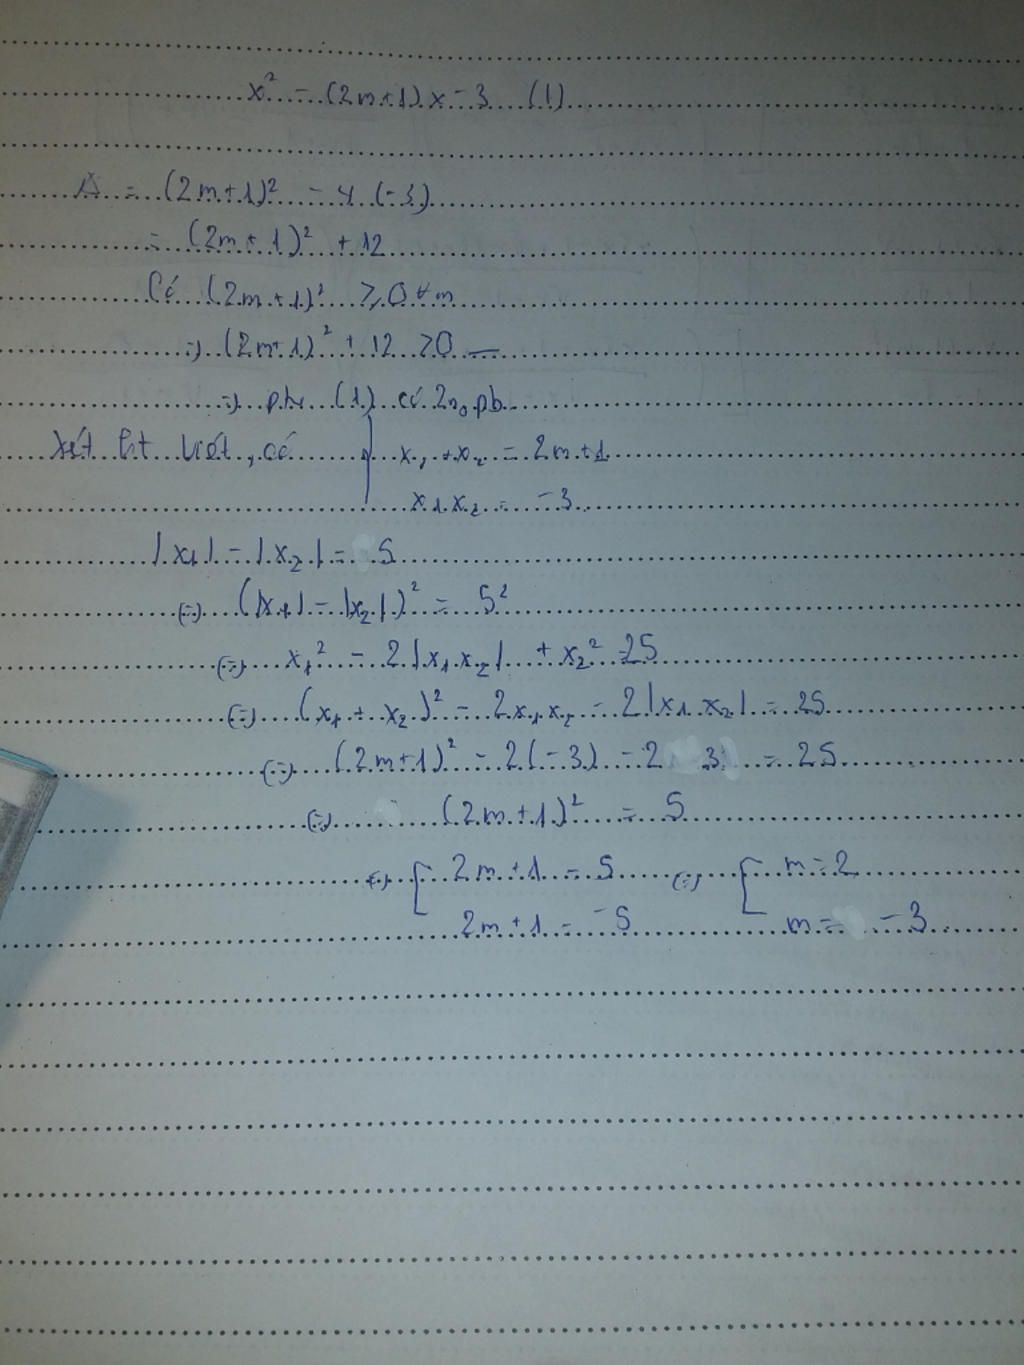 x² - (2m+1)x - 3 (1)
Δ = (2m+1)² - 4.(-3)
= (2m+1)² + 12
Có (2m+1)² ≥ 0 ∀m
=> (2m+1)² + 12 > 0
=> ptr (1) có 2no pb
Xét ht Viét, có { x₁ + x₂ = 2m+1
x₁x₂ = -3
|x₁| - |x₂| = 5
(=) (|x₁| - |x₂|)² = 5²
(=) x₁² - 2|x₁x₂| + x₂² = 25
(=) (x₁ + x₂)² - 2x₁x₂ - 2|x₁x₂| = 25
(=) (2m+1)² - 2(-3) - 2 3 = 25
(=) (2m+1)² = 5
(=) [ 2m+1 = 5 (=) [ m = 2
2m+1 = -5 m = -3